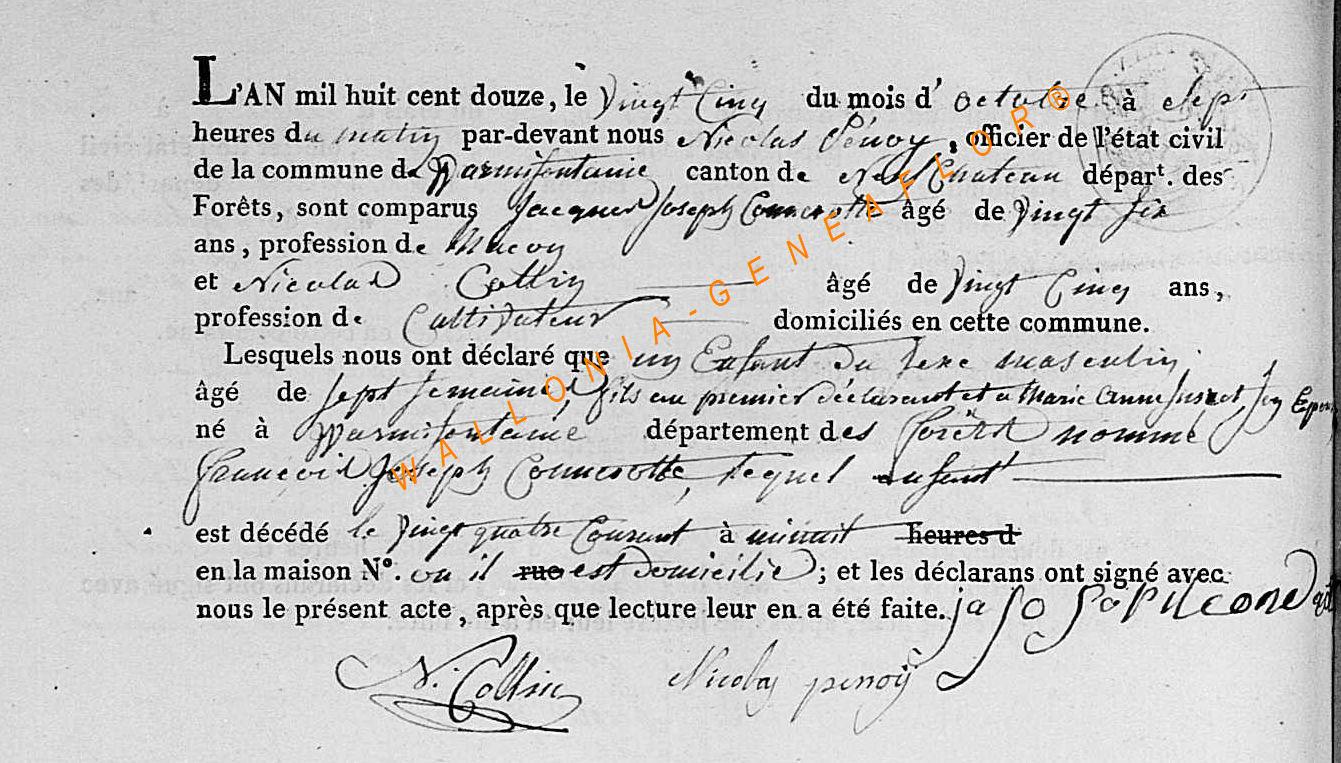 L'AN mil huit cent douze, le vingt Cinq du mois d' octobre à Sept
heures du matin par-devant nous Nicolas Pénoy, officier de l'état civil
de la commune de Warmifontaine canton de Neufchateau départ. des
Forêts, sont comparus Jacques Joseph Connerotte âgé de vingt Six
ans, profession de Macon
et Nicolas Collin âgé de vingt Cinq ans,
profession de Cultivateur domiciliés en cette commune.
Lesquels nous ont déclaré que un Enfant du Sexe masculin
âgé de Sept Semaines, fils au premier déclarant et a Marie Anne
né à Warmifontaine département des forêts nommé
françois Joseph Connerotte, lequel enfant
est décédé le vingt quatre Courant à minuit heures d
en la maison N°. ou il rue est Domicilié; et les déclarans ont signé avec
nous le présent acte, après que lecture leur en a été faite.
N. Collin Nicolas penoÿ
WALLONIA-GENEAFLOR®